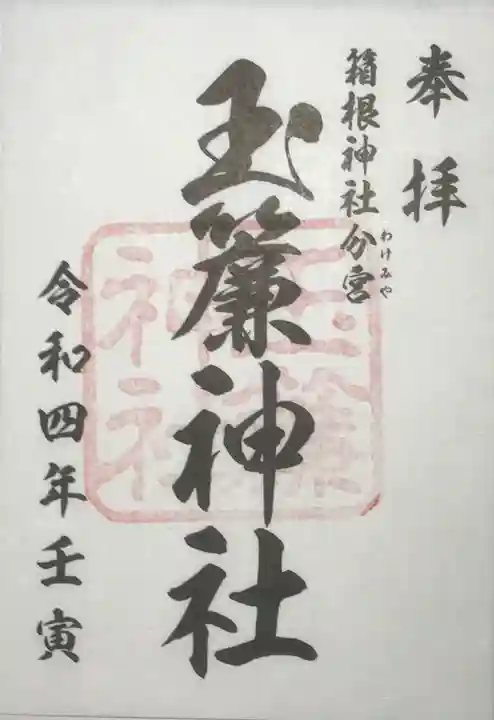 奉拝
箱根神社分宮
わけみや
玉簾神社
玉簾
神社
令和四年壬寅